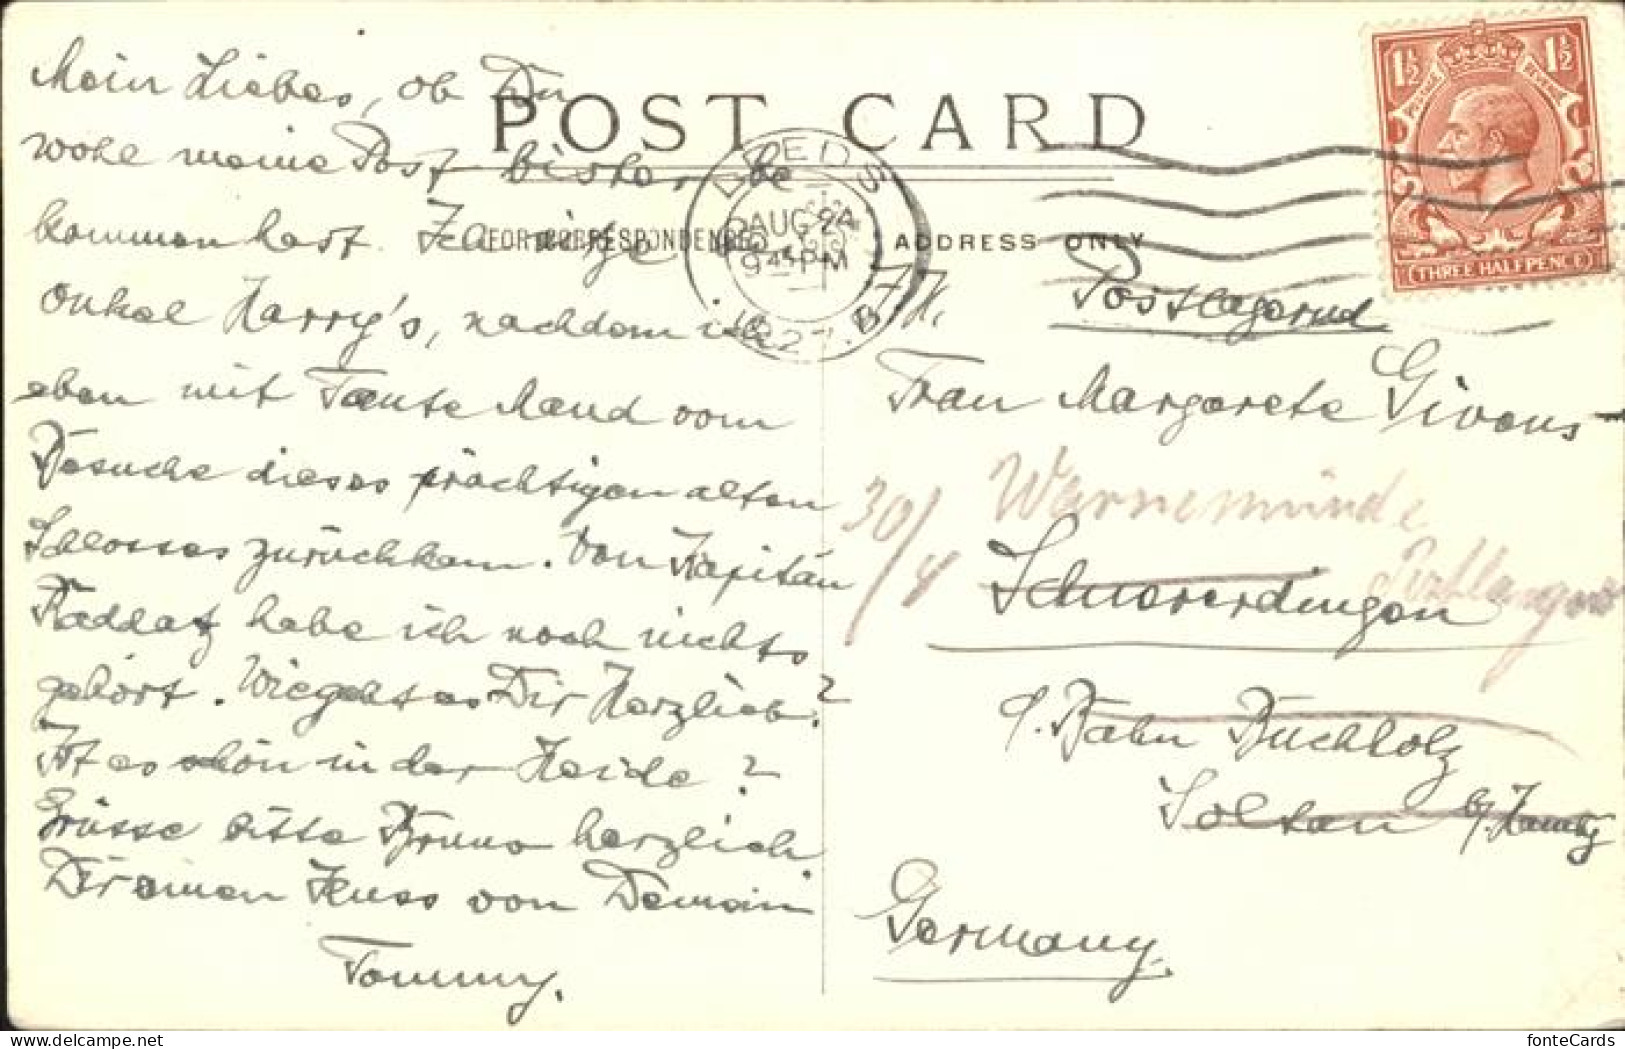 POST CARD
FOR CORRESPONDENCE
ADDRESS ONLY
LEEDS
AUG 24
9 45 PM
1927
1½ 1½
POSTAGE REVENUE
THREE HALFPENCE
Mein Liebes, ob Du
wohl meine Post bisher be
kommen hast. Ich
Onkel Harry's, nachdem ich
eben mit Tante Maud vom
Besuche dieses prächtigen alten
Schlosses zurückkam. Von Kapitän
Raddatz habe ich noch nichts
gehört. Wie geht es Dir Herzlieb?
Ist es schön in der Heide?
Grüsse bitte Bruno herzlich
Dir einen Kuss von Deinem
Tommy.
Postlagernd
Frau Margarete Givens-
30/8 Warnemünde
Schneverdingen
Postlagernd
p. Bahn Buchholz
Soltau b/Hambg
Germany.
fonteCards
www.delcampe.net